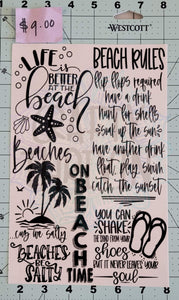 WESTCOTT
$9.00
LIFE is
BETTER
AT THE
beach
BEACH RULES
flip flops required
have a drink
hunt for shells
soak up the sun
have another drink
float, play, swim
catch the sunset
Beaches
cuz I'm salty
BEACHES
BE
SALTY
ON
BEACH
TIME
YOU CAN
SHAKE
THE SAND FROM YOUR
shoes
BUT IT NEVER LEAVES YOUR
soul
1 2 3 4 5 6 7 8